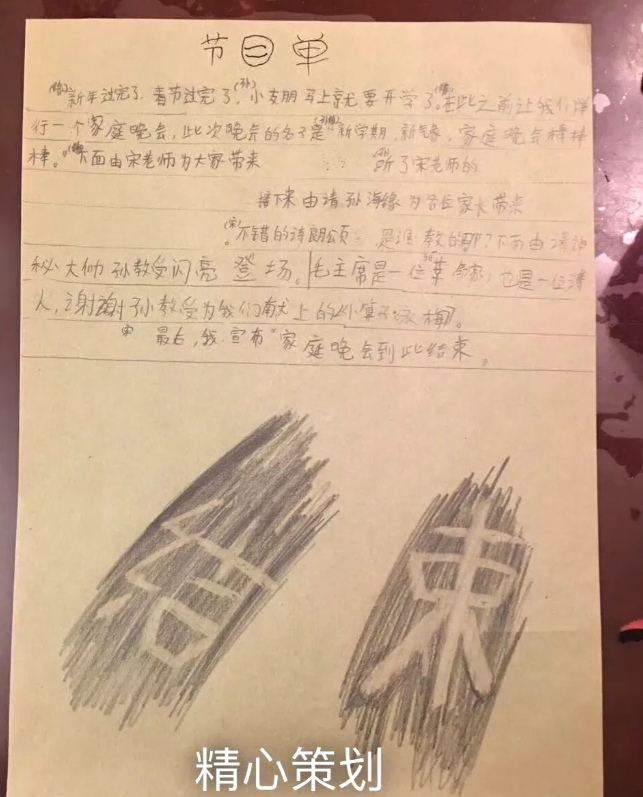 节目单
新年过完了,春节过完了,小支朋马上就要开学了。在此之前让我们举
行一个家庭晚会,此次晚会的名子是"新学期,新气象,家庭晚会棒棒
棒。"下面由宋老师为大家带来 听了宋老师的
接下来由请孙海缘为各位家长带来
不错的诗朗颂 是谁教的那?下面由请神
秘大帅孙教受闪亮登场。毛主席是一位 也是一位诗
人,谢谢孙教受为我们献上的《卜算子·永梅》。
最后,我宣布"家庭晚会到此结束。
结束
精心策划